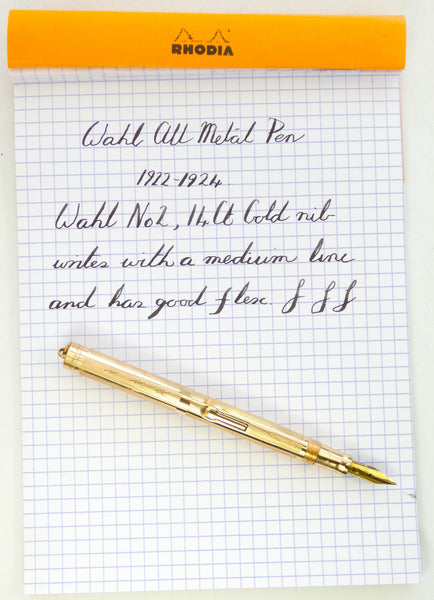 RHODIA
Wahl All Metal Pen
1922-1924.
Wahl No2, 14Ct Gold nib
writes with a medium line
and has good flex. f f f